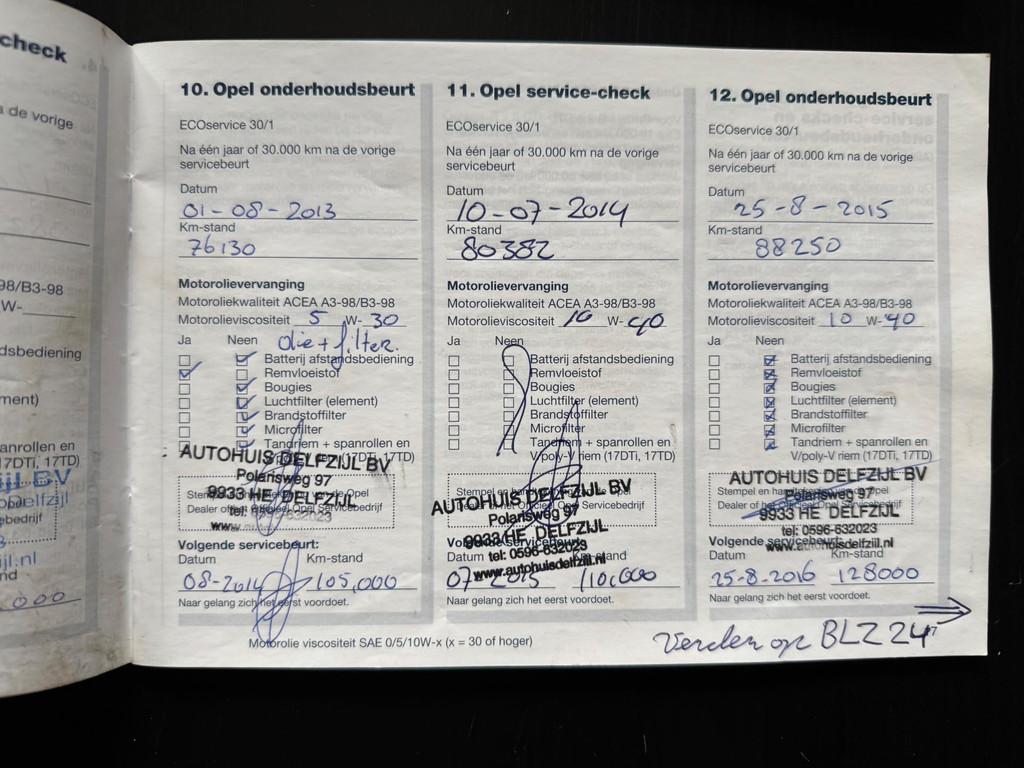 check
a de vorige
98/B3-98
W-
dsbediening
ment)
anrollen en
17DTi, 17TD)
000
10. Opel onderhoudsbeurt
ECOservice 30/1
Na één jaar of 30.000 km na de vorige
servicebeurt
Datum
01-08-2013
Km-stand
76130
Motorolievervanging
Motoroliekwaliteit ACEA A3-98/B3-98
Motorolieviscositeit 5 W-30
Ja Neen olie + filter.
Batterij afstandsbediening
Remvloeistof
Bougies
Luchtfilter (element)
Brandstoffilter
Microfilter
Tandriem + spanrollen en
AUTOHUIS DELFZIJL BV
Polarisweg 97
9933 HE DELFZIJL
tel: 0596-632023
Volgende servicebeurt:
Datum Km-stand
08-2014 105,000
Naar gelang zich het eerst voordoet.
11. Opel service-check
ECOservice 30/1
Na één jaar of 30.000 km na de vorige
servicebeurt
Datum
10-07-2014
Km-stand
80382
Motorolievervanging
Motoroliekwaliteit ACEA A3-98/B3-98
Motorolieviscositeit 10 W-40
Ja Neen
Batterij afstandsbediening
Remvloeistof
Bougies
Luchtfilter (element)
Brandstoffilter
Microfilter
Tandriem + spanrollen en
V/poly-V riem (17DTi, 17TD)
AUTOHUIS DELFZIJL BV
Polarisweg 97
9933 HE DELFZIJL
tel: 0596-632023
www.autohuisdelfzijl.nl
Datum Km-stand
07 2015 110,000
Naar gelang zich het eerst voordoet.
12. Opel onderhoudsbeurt
ECOservice 30/1
Na één jaar of 30.000 km na de vorige
servicebeurt
Datum
25-8-2015
Km-stand
88250
Motorolievervanging
Motoroliekwaliteit ACEA A3-98/B3-98
Motorolieviscositeit 10 W-40
Ja Neen
Batterij afstandsbediening
Remvloeistof
Bougies
Luchtfilter (element)
Brandstoffilter
Microfilter
Tandriem + spanrollen en
V/poly-V riem (17DTi, 17TD)
AUTOHUIS DELFZIJL BV
Polarisweg 97
9933 HE DELFZIJL
tel: 0596-632023
www.autohuisdelfzijl.nl
Volgende servicebeurt:
Datum Km-stand
25-8-2016 128000
Naar gelang zich het eerst voordoet.
Motorolie viscositeit SAE 0/5/10W-x (x = 30 of hoger)
Verder op BLZ 24